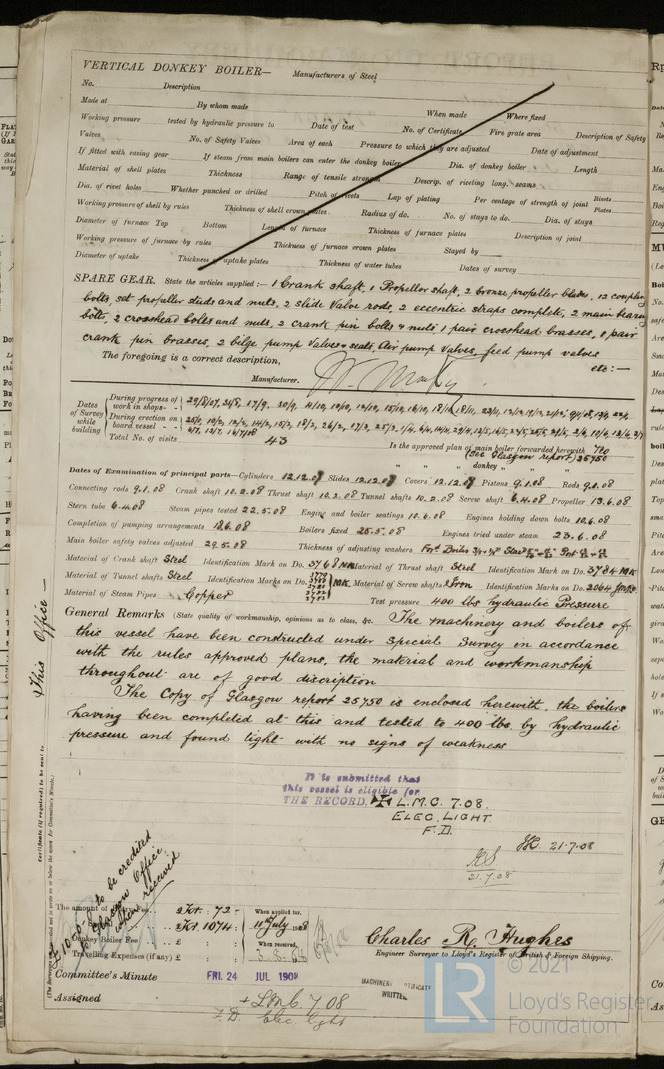 VERTICAL DONKEY BOILER— Manufacturers of Steel
No. Description
Made at By whom made When made Where fixed
Working pressure tested by hydraulic pressure to Date of test No. of Certificate Fire grate area Description of Safety
Valves No. of Safety Valves Area of each Pressure to which they are adjusted Date of adjustment
If fitted with easing gear If steam from main boilers can enter the donkey boiler Dia. of donkey boiler Length
Material of shell plates Thickness Range of tensile strength Descrip. of riveting long. seams
Dia. of rivet holes Whether punched or drilled Pitch of rivets Lap of plating Per centage of strength of joint Rivets Plates
Working pressure of shell by rules Thickness of shell crown plates Radius of do. No. of stays to do. Dia. of stays
Diameter of furnace Top Bottom Length of furnace Thickness of furnace plates Description of joint
Working pressure of furnace by rules Thickness of furnace crown plates Stayed by
Diameter of uptake Thickness of uptake plates Thickness of water tubes Dates of survey
SPARE GEAR. State the articles supplied:— 1 Crank shaft, 1 Propellor shaft, 2 bronze propeller blades, 12 coupling
bolts, set propeller studs and nuts, 2 slide Valve rods, 2 eccentric straps complete, 2 main bearing
bolts, 2 crosshead bolts and nuts, 2 crank pin bolts & nuts 1 pair crosshead brasses, 1 pair
crank pin brasses, 2 bilge pump valves & seats, Air pump valves, feed pump valves
etc:—
The foregoing is a correct description,
Manufacturer.
Dates of Survey while building
During progress of work in shops - -
During erection on board vessel - - -
Total No. of visits 43
Is the approved plan of main boiler forwarded herewith no
(See Glasgow report) 25750
" " " donkey " " "
Dates of Examination of principal parts—Cylinders 12.12.07 Slides 12.12.07 Covers 12.12.07 Pistons 9.1.08 Rods 9.1.08
Connecting rods 9.1.08 Crank shaft 10.2.08 Thrust shaft 10.2.08 Tunnel shafts 10.2.08 Screw shaft 6.4.08 Propeller 13.6.08
Stern tube 6.4.08 Steam pipes tested 22.5.08 Engine and boiler seatings 10.6.08 Engines holding down bolts 10.6.08
Completion of pumping arrangements 18.6.08 Boilers fixed 25.5.08 Engines tried under steam 23.6.08
Main boiler safety valves adjusted 29.5.08 Thickness of adjusting washers
Material of Crank shaft Steel Identification Mark on Do. 3768 NK Material of Thrust shaft Steel Identification Mark on Do. 3784 NK
Material of Tunnel shafts Steel Identification Marks on Do. NK Material of Screw shafts Iron Identification Marks on Do. 2064
Material of Steam Pipes Copper Test pressure 400 lbs hydraulic Pressure
General Remarks (State quality of workmanship, opinions as to class, &c. The machinery and boilers of
this vessel have been constructed under Special Survey in accordance
with the rules approved plans, the material and workmanship
throughout are of good discription
The Copy of Glasgow report 25750 is enclosed herewith, the boilers
having been completed at this and tested to 400 lbs by hydraulic
pressure and found tight with no signs of weakness
& This Office
It is submitted that
this vessel is eligible for
THE RECORD. ✠ L.M.C. 7.08.
ELEC. LIGHT
F.D.
21.7.08
21.7.08
Certificate (if required) to be sent to
to be credited
to Glasgow Office
when received
The amount of Fee £ 72 When applied for,
11th July 1908
Donkey Boiler Fee £ When received,
Travelling Expenses (if any) £
Charles R. Hughes
Engineer Surveyor to Lloyd's Register of British & Foreign Shipping.
Committee's Minute FRI. 24 JUL 1908
MACHINERY CERTIFICATE
WRITTEN.
Assigned + LMC 7.08
F.D. Elec. light
© 2021
LR
Lloyd's Register
Foundation